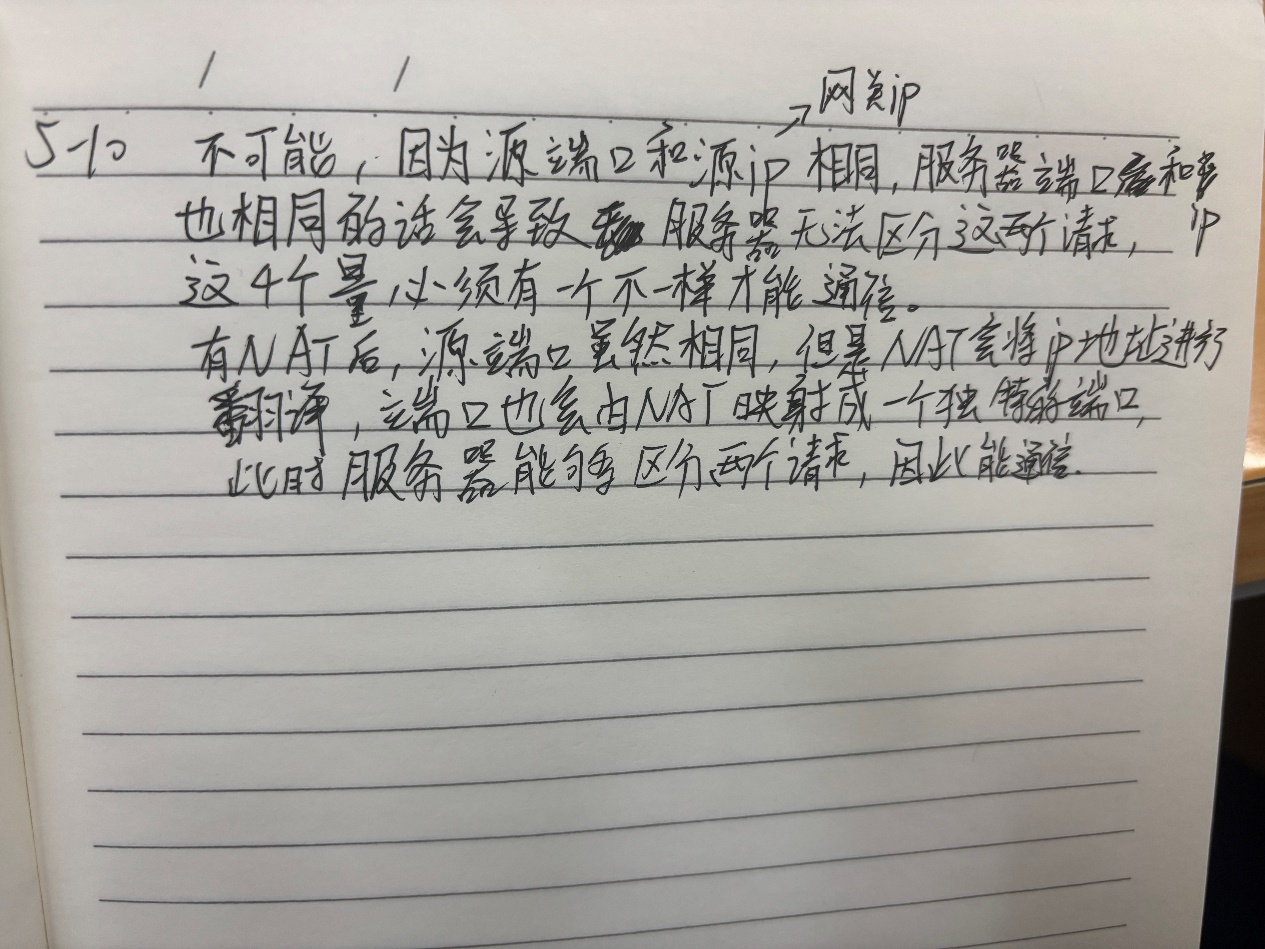 网关ip
5-10 不可能，因为源端口和源ip相同，服务器端口和ip
也相同的话会导致服务器无法区分这两个请求，
这4个量，必须有一个不一样才能通信。
有NAT后，源端口虽然相同，但是NAT会将ip地址进行
翻译，端口也会由NAT映射成一个独特的端口，
此时服务器能够区分两个请求，因此能通信.